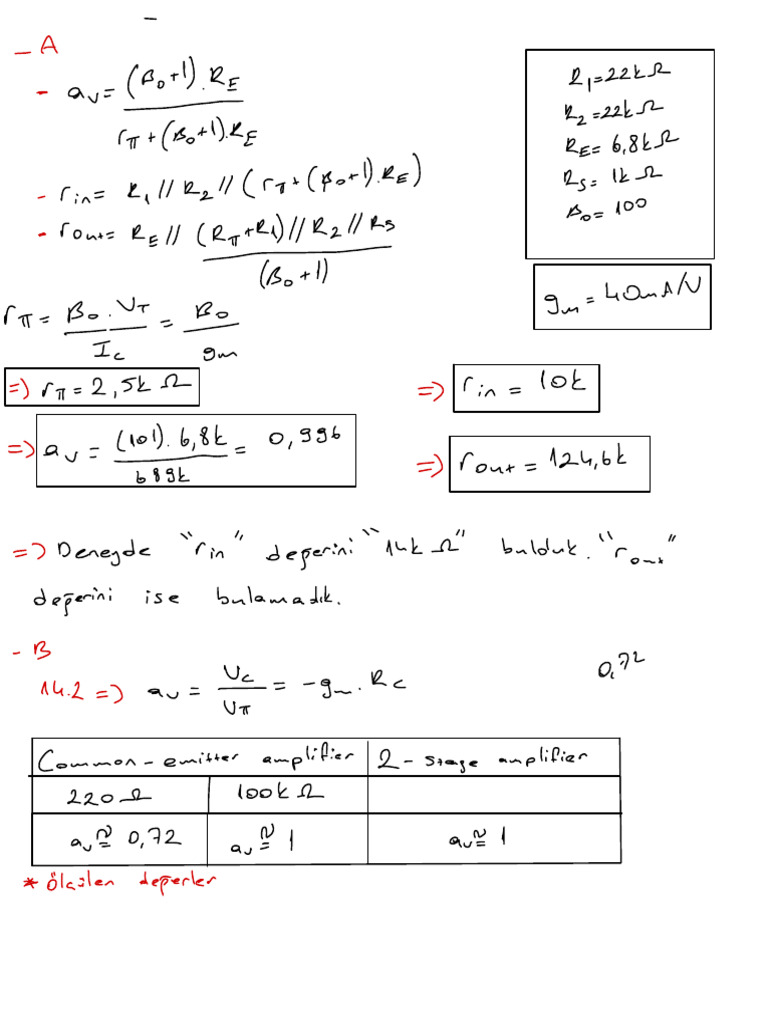 - A
- av = (β₀+1).RE / rπ+(β₀+1).RE
R₁=22kΩ
R₂=22kΩ
RE=6,8kΩ
RS=1kΩ
β₀=100
- rin= R₁//R₂//(rπ+(β₀+1).RE)
- rout= RE//(Rπ+R1)//R₂//RS / (β₀+1)
gm=40mA/V
rπ= β₀.VT / Ic = β₀ / gm
=> rπ=2,5kΩ
=> rin = 10k
=> av = (101).6,8k / 689k = 0,996
=> rout = 124,6k
=> Deneyde "rin" değerini "14kΩ" bulduk. "rout"
değerini ise bulamadık.
- B
14.2 => av = Vc / Vπ = -gm.Rc
0,72
Common-emitter amplifier 2-stage amplifier
220Ω 100kΩ
av≅0,72 av≅1 av≅1
* Ölçülen değerler